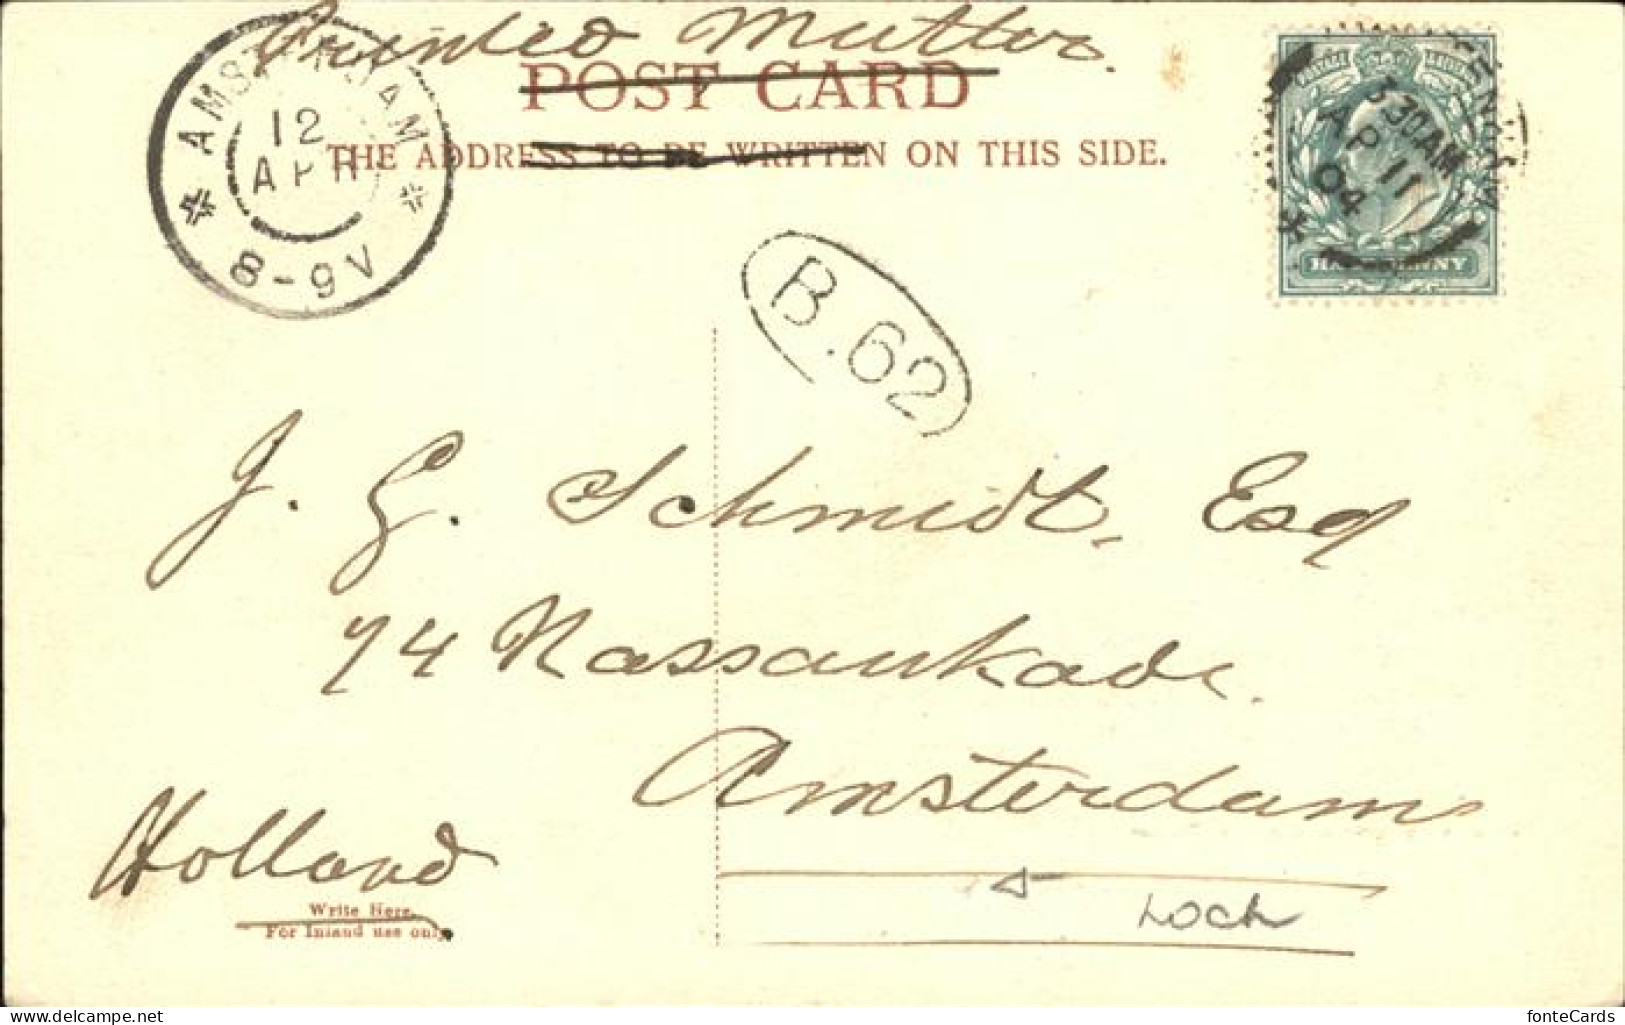 Printed Matter.
POST CARD
THE ADDRESS TO BE WRITTEN ON THIS SIDE.
AMSTERDAM
12
APR
8-9V
3.30AM
AP 11
04
HALFPENNY
B.62
J. G. Schmidt, Esq
74 Nassaukade.
Amsterdam
Holland
Write Here.
For Inland use only.
Loch
delcampe.net
fonteCards